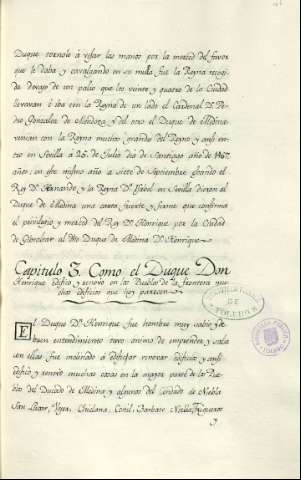 Duque tornole á besar las manos por la merced del favor
que le daba y cavalgando en su mula fue la Reyna recogi-
da debajo de un palio que los veinte y quatro de la Ciudad
llevavan é iva con la Reyna de un lado el Cardenal Dn. Pe-
dro Gonzalez de Mendoza y del otro el Duque de Medina
venian con la Reyna muchos grandes del Reyno y ansi en-
tró en Sevilla á 25. de Julio dia de Santiago año de 147
años: en este mismo año á siete de Septiembre estando el
Rey Dn. Hernando y la Reyna Da. Isabel en Sevilla dieron al
Duque de Medina una carta fuerte y firme que confirma
el privilegio y merced del Rey Dn. Henrique por la Ciudad
de Gibraltar al dho Duque de Medina Dn. Henrique.
Capitulo 3. Como el Duque Don
Henrique edificó y renovó en los Pueblos de la frontera mu-
chos edificios que hoy parecen
El Duque Dn. Henrique fue hombre muy sabio y de
buen entendimiento tuvo animo de emprender y salia
con ellas fue inclinado á edificar renovar edificios y ansi
edificó y renovó muchas cosas en la mayor parte de los Pue-
blos del Ducado de Medina y algunos del Condado de Niebla
San Lucar, Vejer, Chiclana, Conil, Barbate, Niebla, Trigueros
y
DE
TOLEDO